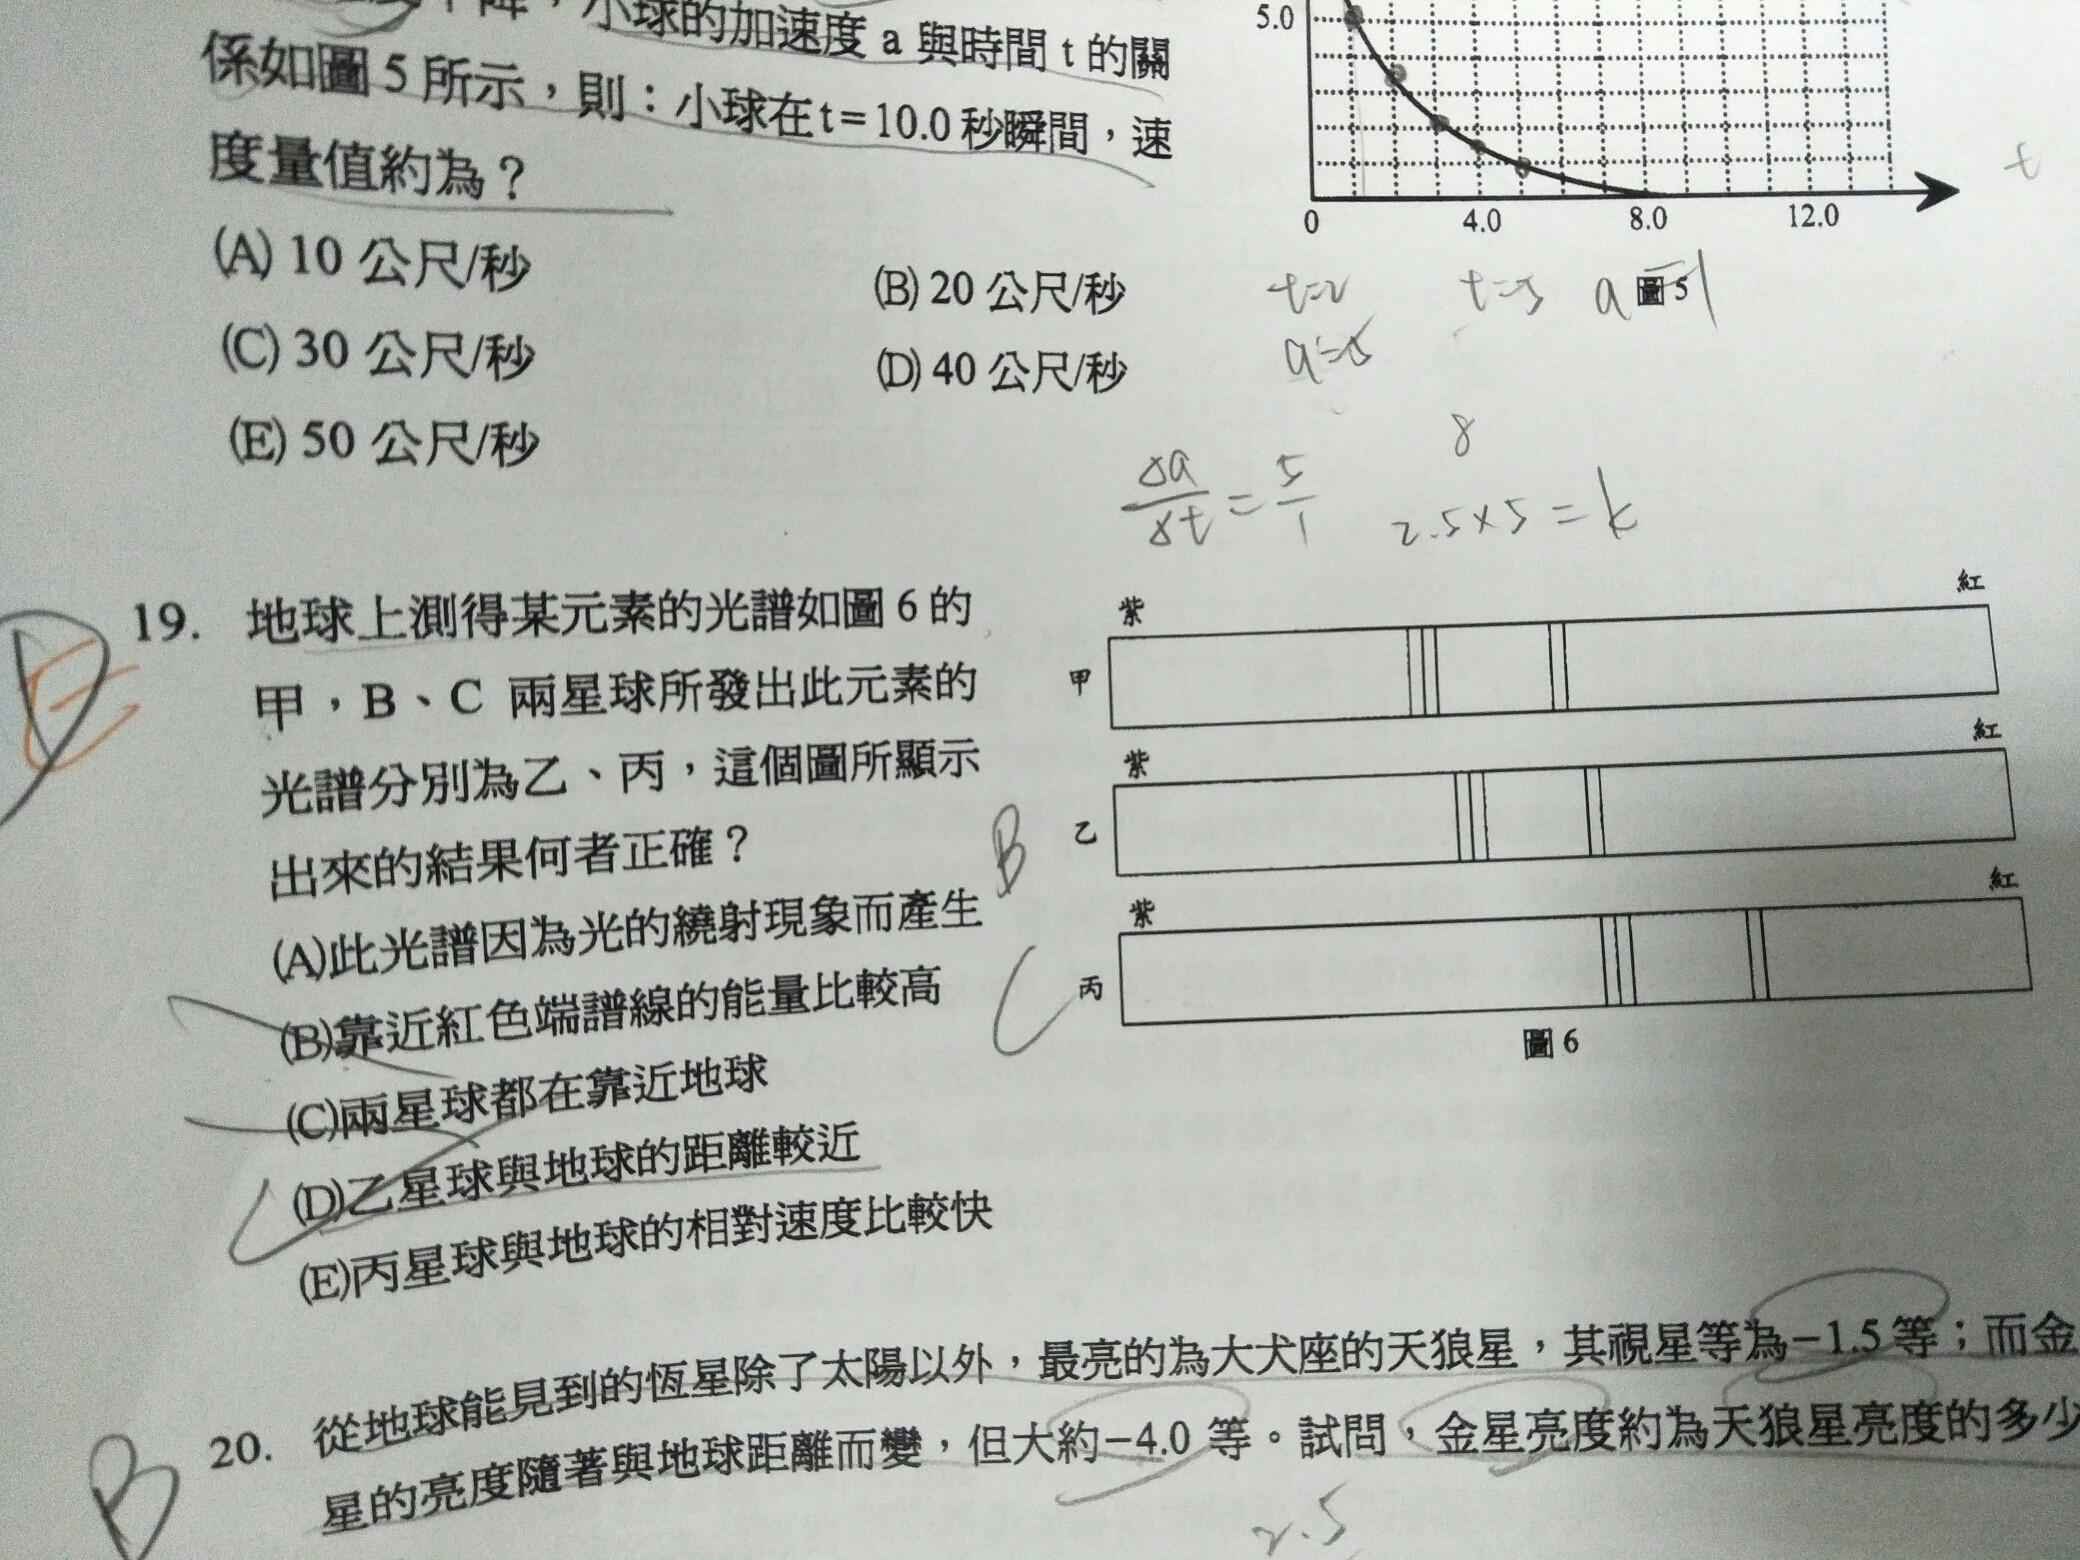 下降，小球的加速度 a 與時間 t 的關
係如圖 5 所示，則：小球在 t = 10.0 秒瞬間，速
度量值約為？
(A) 10 公尺/秒
(B) 20 公尺/秒
(C) 30 公尺/秒
(D) 40 公尺/秒
(E) 50 公尺/秒
5.0
0 4.0 8.0 12.0
t
圖 5
t=2
t=5
a=1
Δa/Δt = 5/1
8
2.5×5=k
D
E
19. 地球上測得某元素的光譜如圖 6 的
甲，B、C 兩星球所發出此元素的
光譜分別為乙、丙，這個圖所顯示
出來的結果何者正確？
(A)此光譜因為光的繞射現象而產生
(B)靠近紅色端譜線的能量比較高
(C)兩星球都在靠近地球
(D)乙星球與地球的距離較近
(E)丙星球與地球的相對速度比較快
紫 紅
甲
紫 紅
B 乙
紫 紅
C 丙
圖 6
B
20. 從地球能見到的恆星除了太陽以外，最亮的為大犬座的天狼星，其視星等為−1.5 等；而金
星的亮度隨著與地球距離而變，但大約−4.0 等。試問，金星亮度約為天狼星亮度的多少
2.5